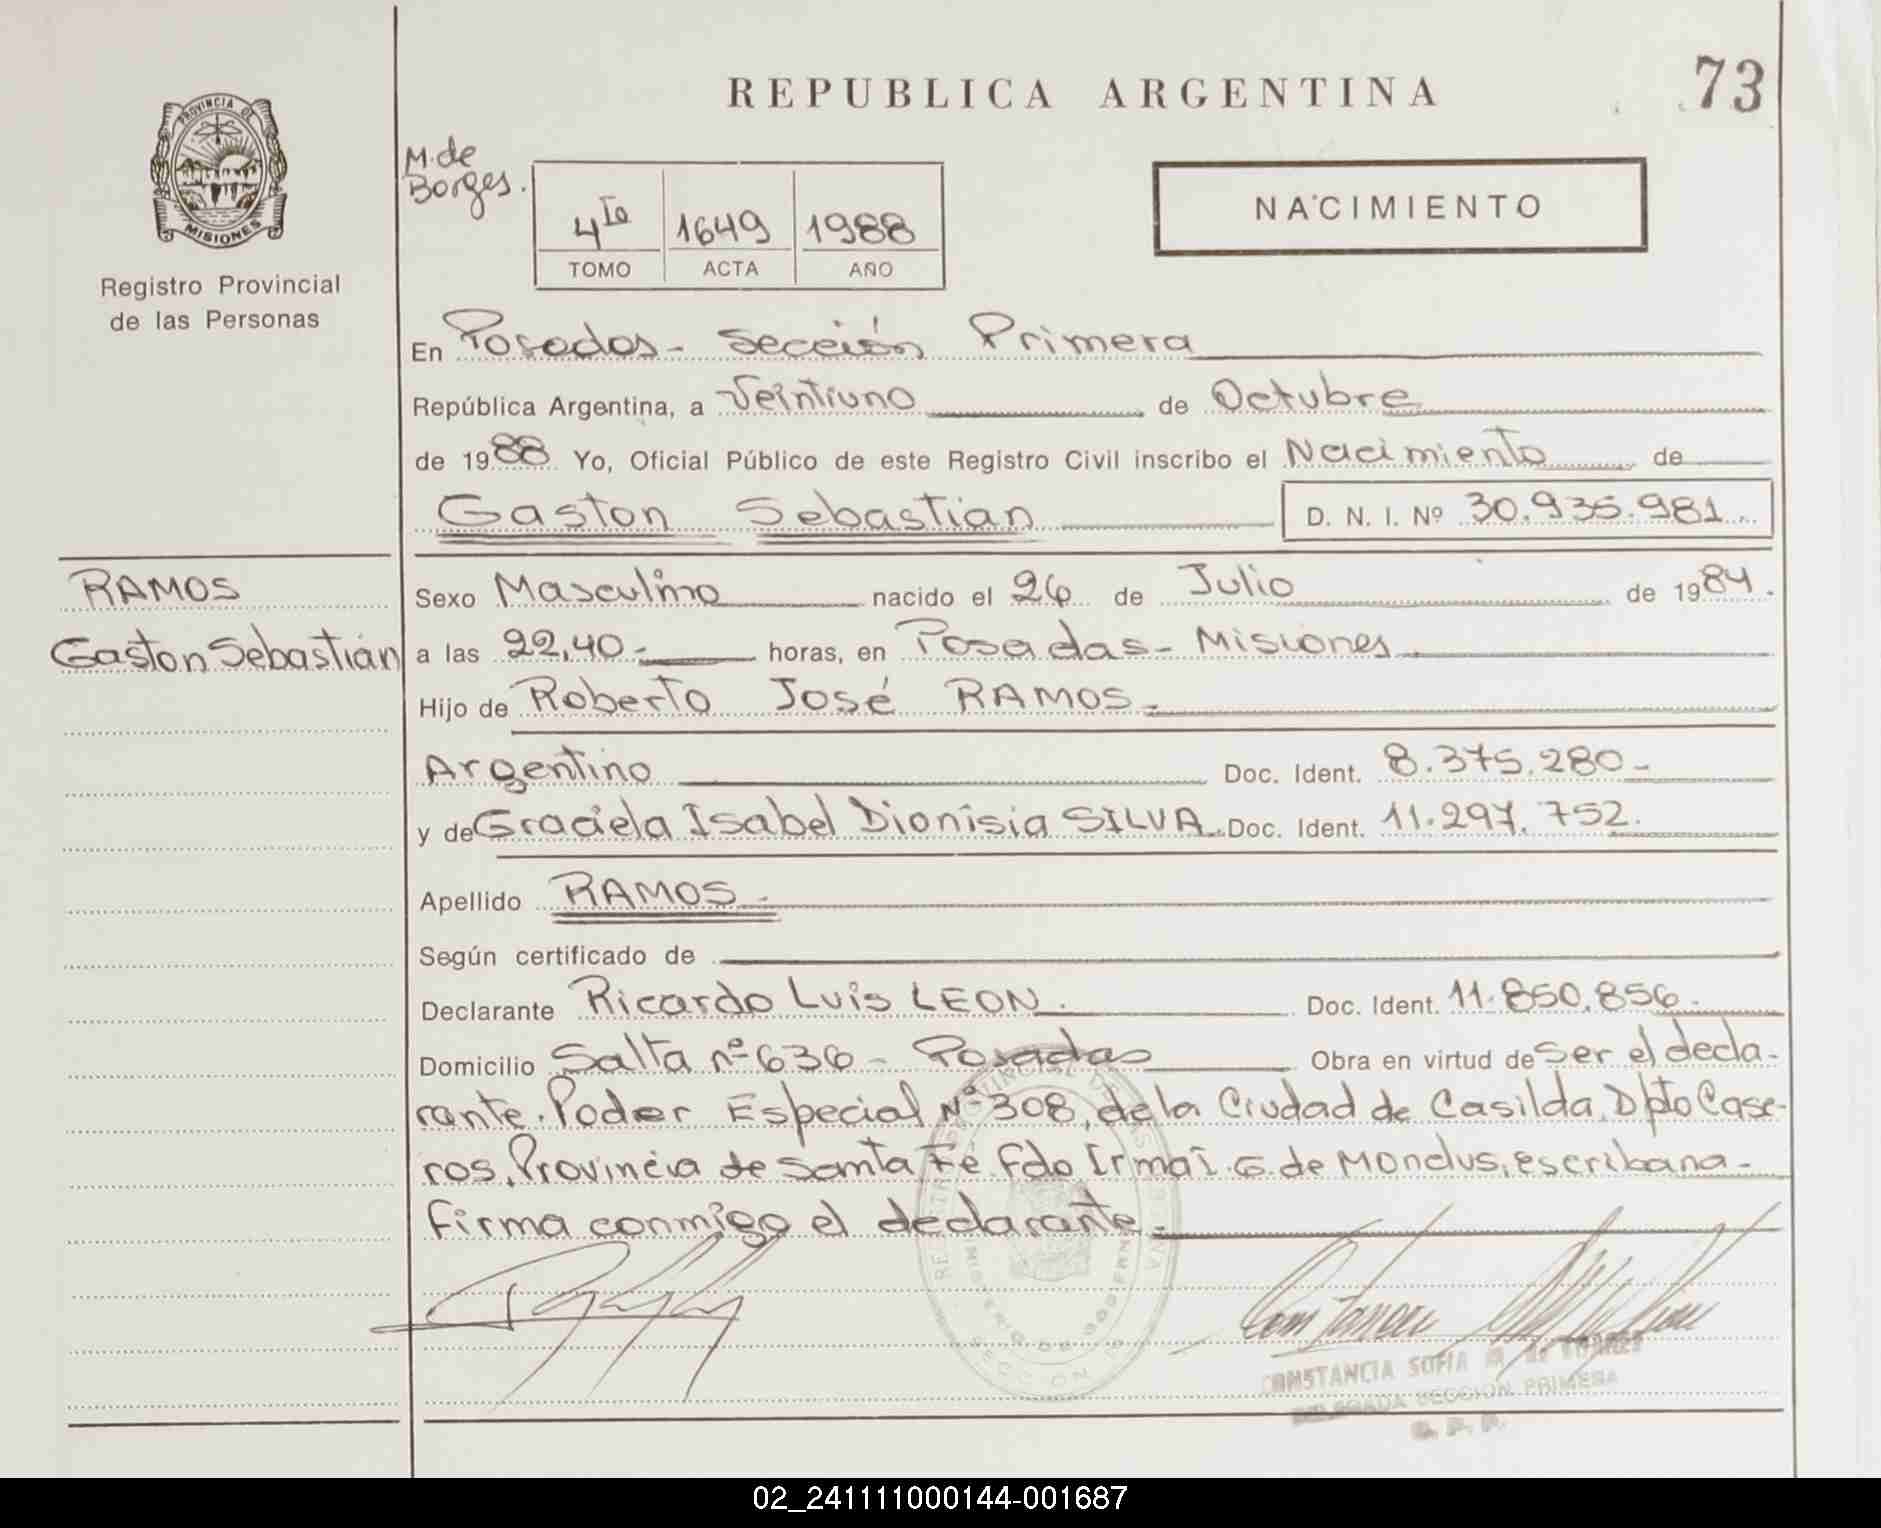 REPUBLICA ARGENTINA
73
PROVINCIA DE
MISIONES
Registro Provincial
de las Personas
M. de
Borges.
4to 1649 1988
TOMO ACTA AÑO
NACIMIENTO
En Posadas - Sección Primera
República Argentina, a Veintiuno de Octubre
de 1988 Yo, Oficial Público de este Registro Civil inscribo el Nacimiento de
Gaston Sebastian D. N. I. Nº 30.935.981
RAMOS
Gaston Sebastián
Sexo Masculino nacido el 26 de Julio de 1984.
a las 22,40- horas, en Posadas - Misiones
Hijo de Roberto José RAMOS-
Argentino Doc. Ident. 8.375.280-
y de Graciela Isabel Dionisia SILVA Doc. Ident. 11.297.752.
Apellido RAMOS-
Según certificado de
Declarante Ricardo Luis LEON. Doc. Ident. 11.850.856-
Domicilio Salta nº 636 - Posadas Obra en virtud de Ser el decla-
rante. Poder Especial Nº 308, de la Ciudad de Casilda, Dpto Case-
ros, Provincia de Santa Fe fdo Irma I. G. de Mondus, escribana-
firma conmigo el declarante.-
CONSTANCIA SOFIA M. DE
DELEGADA SECCION PRIMERA
02_241111000144-001687